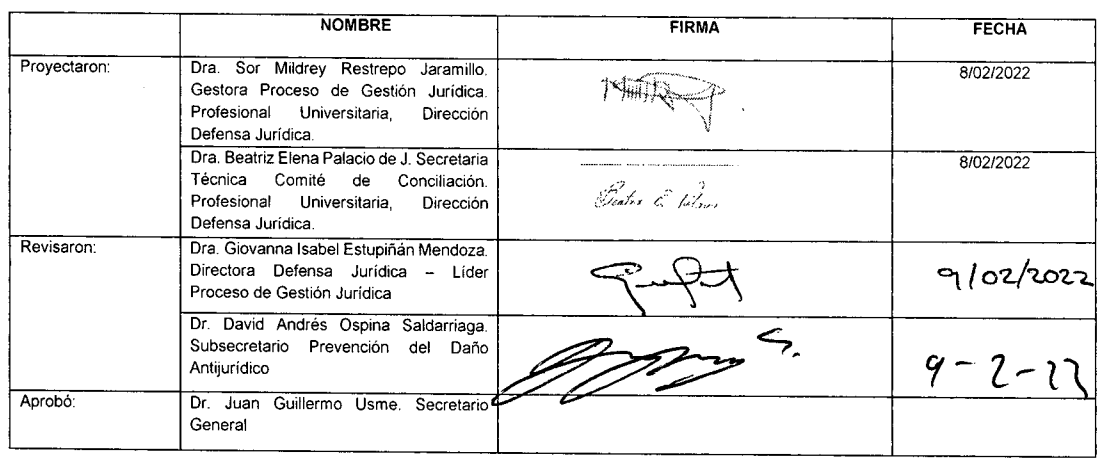 NOMBRE FIRMA FECHA
Proyectaron: Dra. Sor Mildrey Restrepo Jaramillo. 8/02/2022
Gestora Proceso de Gestión Jurídica.
Profesional Universitaria, Dirección
Defensa Jurídica.
Dra. Beatriz Elena Palacio de J. Secretaria 8/02/2022
Técnica Comité de Conciliación.
Profesional Universitaria, Dirección
Defensa Jurídica.
Revisaron: Dra. Giovanna Isabel Estupiñán Mendoza.
Directora Defensa Jurídica – Líder 9/02/2022
Proceso de Gestión Jurídica
Dr. David Andrés Ospina Saldarriaga.
Subsecretario Prevención del Daño 9-2-22
Antijurídico
Aprobó: Dr. Juan Guillermo Usme. Secretario
General